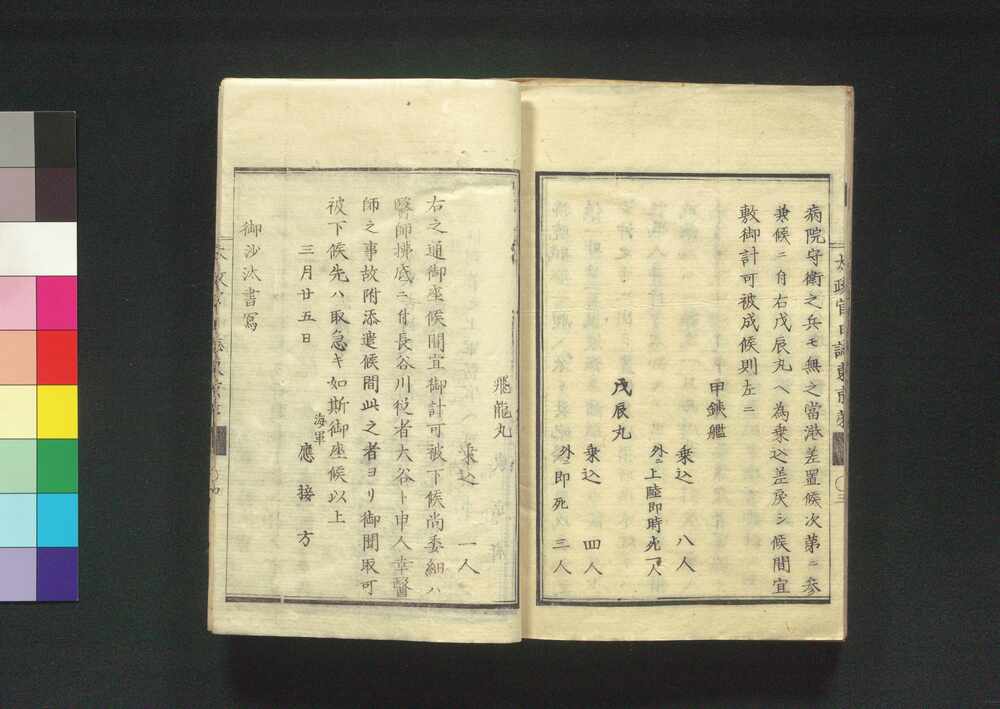 病院守衛之兵モ無之當港差置候次第ニ参
兼候ニ付右戊辰丸ヘ為乗込差戻シ候間宜
敷御計可被成候則左ニ
甲鉄艦
乗込 八人
外ニ上陸即時死一人
戊辰丸
乗込 四人
外ニ即死 三人
飛龍丸
乗込 一人
右之通御座候間宜御計可被下候尚委細ハ
醫師拂底ニ付長谷川従者大谷ト申人幸醫
師之事故附添遣候間此之者ヨリ御聞取可
被下候先ハ取急キ如斯御座候以上
三月廿五日
海軍
應接方
御沙汰書寫